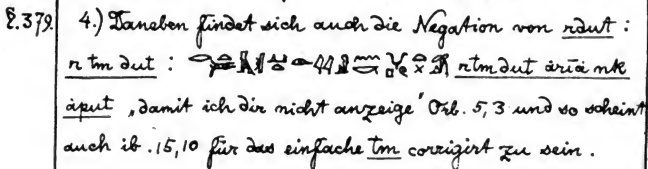 §.379. 4.) Daneben findet sich auch die Negation von rdut :
n tm dut : rtmdut ariá nk
áput „damit ich dir nicht anzeige" Orb. 5,3 und so scheint
auch ib. 15,10 für das einfache tm corrigirt zu sein.